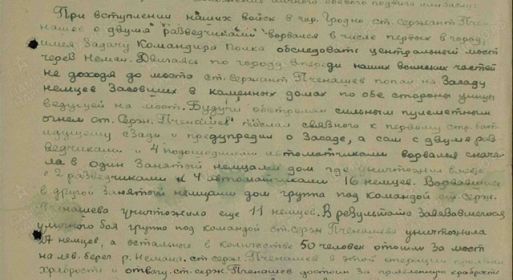 При вступлении наших войск в гор. Гродно ст. сержант Пче-
нашев с двумя разведчиками ворвался в числе первых в город,
имея задачу Командира Полка обследовать центральный мост
через Неман. Двигаясь по городу впереди наших воинских частей
не доходя до моста ст. сержант Пченашев попал на Засаду
немцев Засевших в каменных домах по обе стороны улицы
ведущей на мост. Будучи обстрелян сильным пулеметным
огнем ст. Серж. Пченашев послал связного к первому стр. бат.
идущему сзади и предупредил о Засаде, а сам с двумя раз
ведчиками и 4 подошедшими автоматчиками ворвался снача-
ла в один Занятый немцами дом где уничтожил вместе
с 2 разведчиками и 4 автоматчиками 16 немцев. Ворвавшись
в другой Занятый немцами дом группа под командой ст. серж.
Пченашева уничтожила еще 11 немцев. В результате Завязавшегося
уличного боя группа под командой ст. серж Пченашева уничтожила
немцев, а остальные в количестве 50 человек отошли За мост
на лев. берег р. Немана. ст. серж. Пченашев в этой операции проявил
храбрость и отвагу. ст. серж. Пченашев достоин За проявленную храбрость